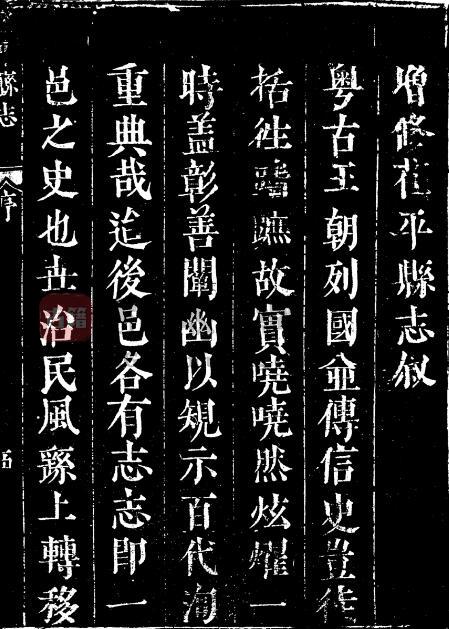 增修茌平縣志叙
粵古王朝列國並傳信史豈徒
括徃蹟蹠故實嘵嘵然炫燿一
時盖彰善闡幽以規示百代洵
重典哉迨後邑各有志志即一
邑之史也世治民風繇上轉移
縣志 序 五